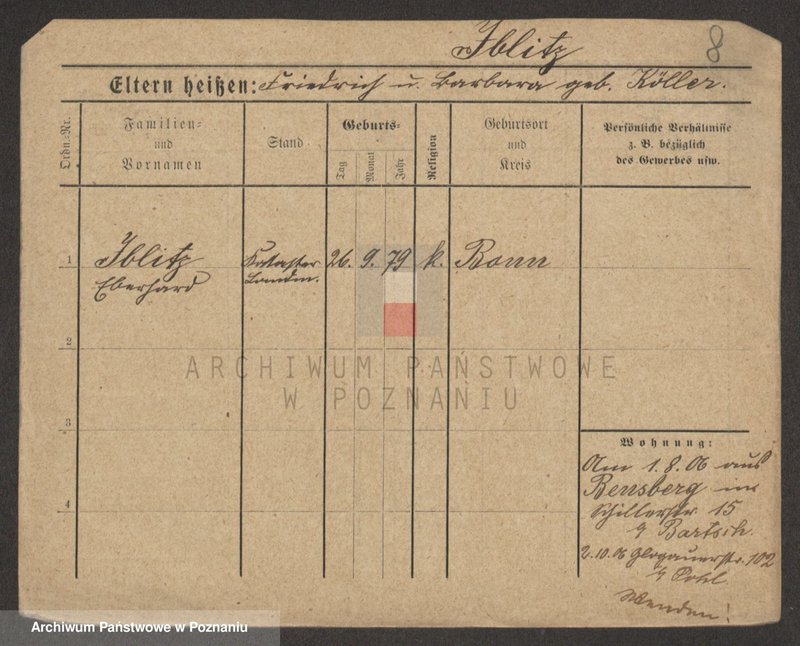 Iblitz 8
Eltern heißen: Friedrich u. Barbara geb. Köller.
Ordn.-Nr.
Familien-
und
Vornamen
Stand
Geburts-
Tag
Monat
Jahr
Religion
Geburtsort
und
Kreis
Persönliche Verhältnisse
z. B. bezüglich
des Gewerbes usw.
1 Iblitz Kataster 26. 9. 79 k. Bonn
Eberhard
2
ARCHIWUM PAŃSTWOWE
W POZNANIU
3
4
Wohnung:
Am 1.8.06 aus
Bensberg in
Schillerstr 15
Bartsch
2.10.06 Glogauerstr. 102
Pohl
Wenden!
Archiwum Państwowe w Poznaniu